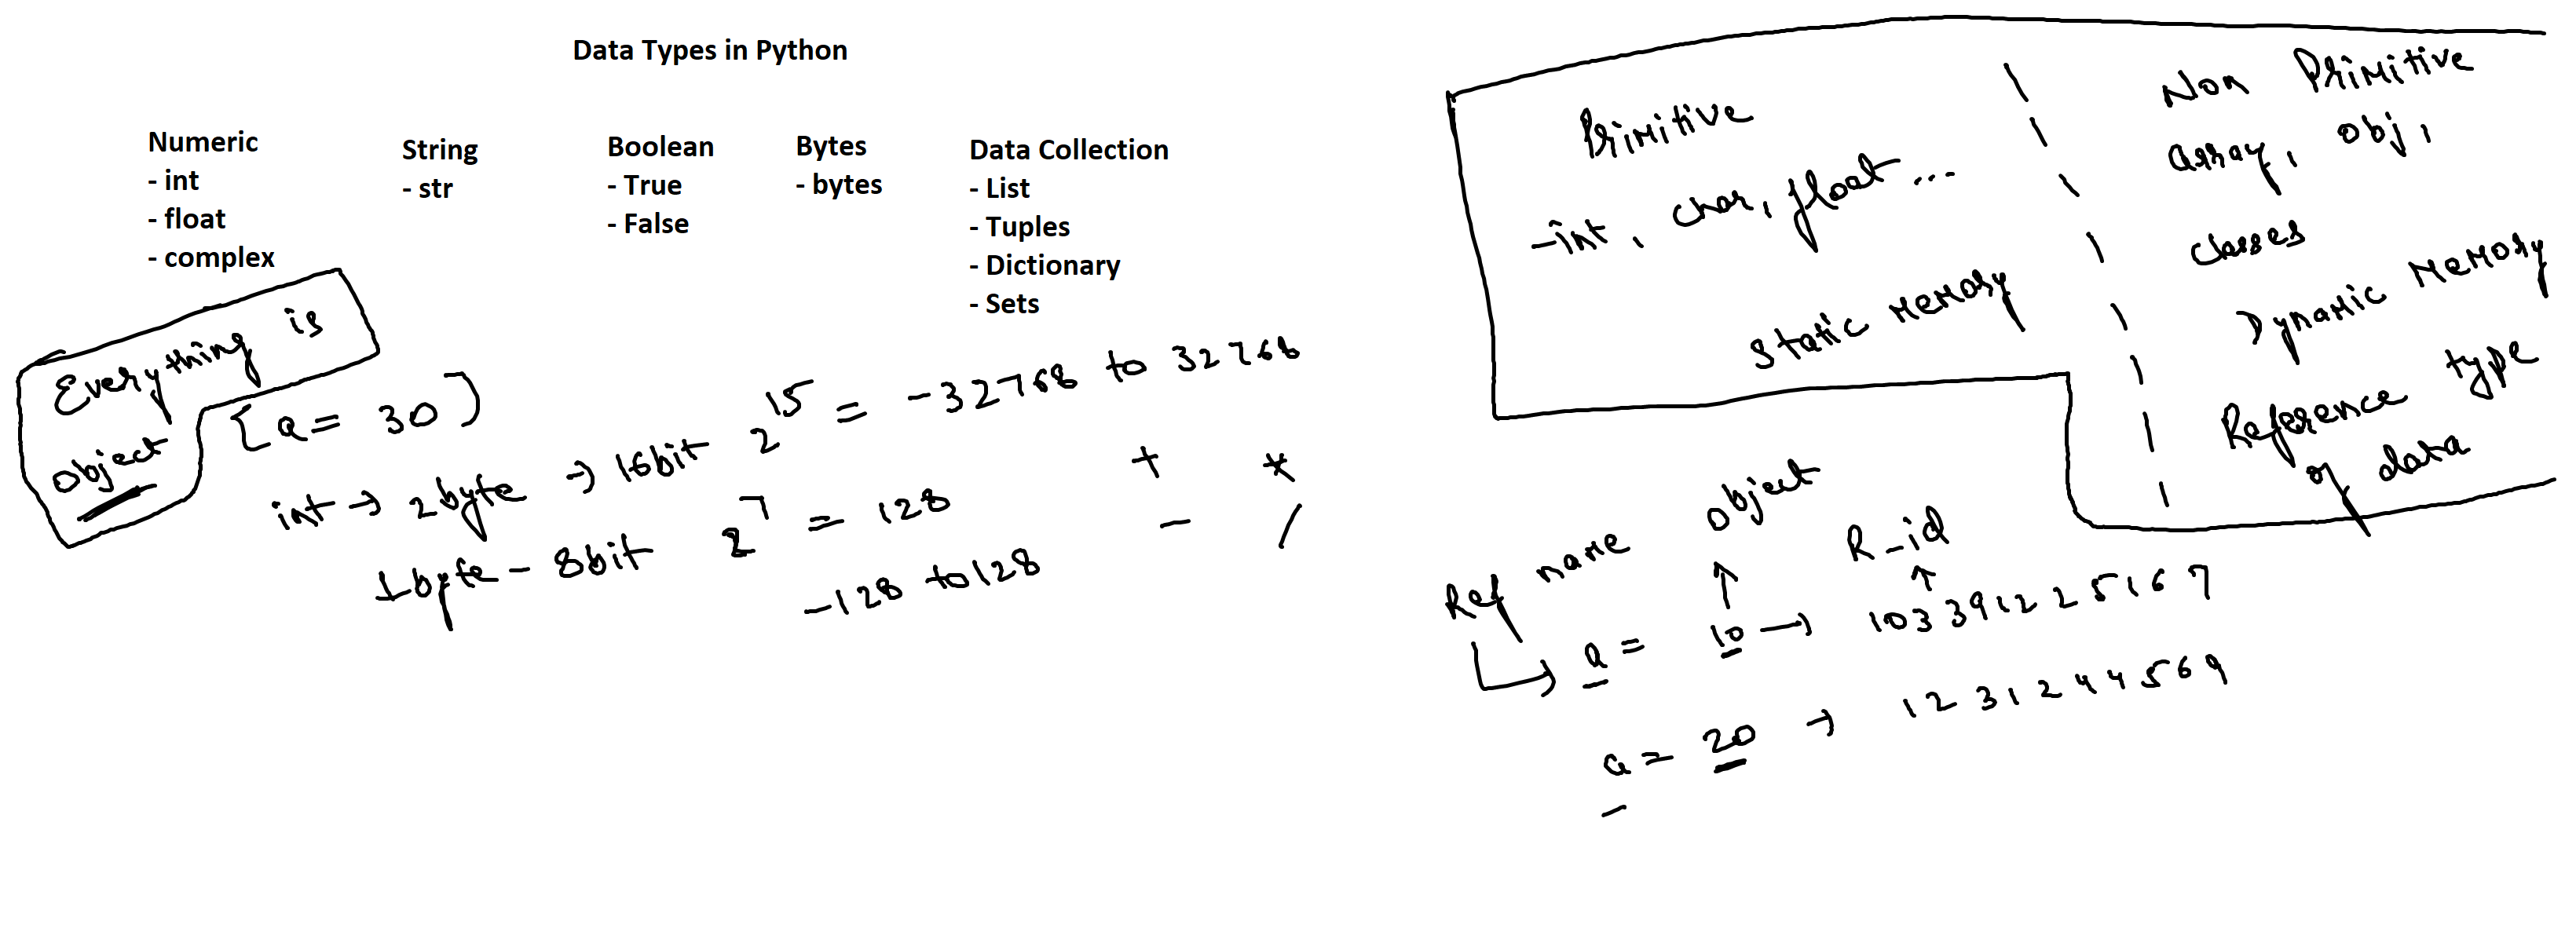 Data Types in Python
Numeric
- int
- float
- complex
String
- str
Boolean
- True
- False
Bytes
- bytes
Data Collection
- List
- Tuples
- Dictionary
- Sets
Everything is
object
[a = 30]
int → 2 byte → 16 bit 2^15 = -32768 to 32768
1 byte - 8 bit 2^7 = 128
-128 to 128
+ *
- /
Primitive
- int, char, float...
Static Memory
Non Primitive
array, obj,
classes
Dynamic Memory
Reference type
of data
Ref name object R_id
a = 10 → 103391225167
a = 20 → 1231244569